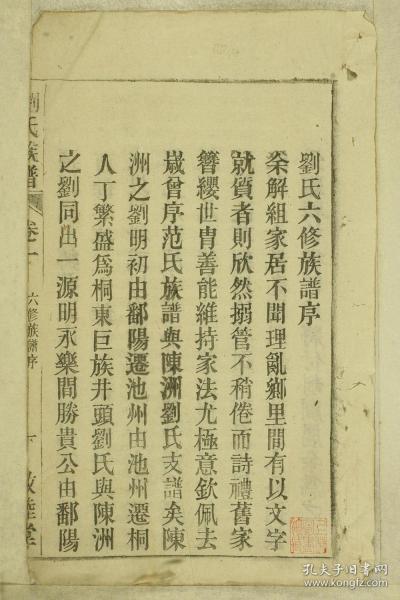 劉氏六修族譜序
余解組家居不聞理亂鄉里間有以文字
就質者則欣然搦管不稍倦而詩禮舊家
簪纓世胄善能維持家法尤極意欽佩去
歲曾序范氏族譜與陳洲劉氏支譜矣陳
洲之劉明初由鄱陽遷池州由池州遷桐
人丁繁盛為桐東巨族井頭劉氏與陳洲
之劉同出一源明永樂間勝貴公由鄱陽
劉氏族譜
卷一
六修族譜序
一
敦睦堂
孔夫子旧书网
www.kongfz.com